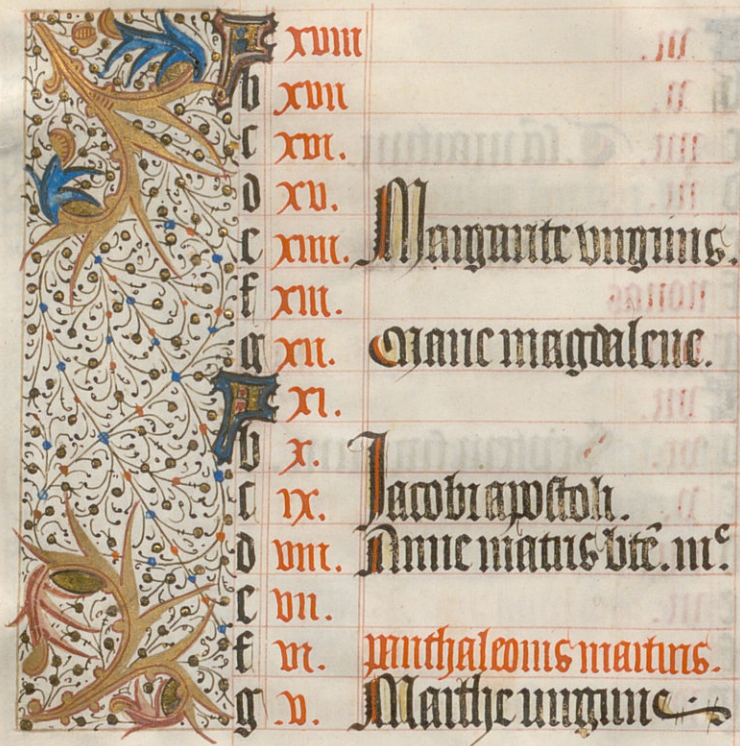 A xviii
b xvii
c xvi.
d xv.
e xiiii. Margarite virginis.
f xiii.
g xii. Marie magdalene.
A xi.
b x.
c ix. Jacobi apostoli.
d viii. Anne matris bt̄e. mᵉ.
e vii.
f vi. panthaleonis martiris.
g .v. Marthe virginis